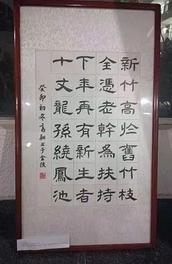 新竹高於舊竹枝
全憑老幹為扶持
下年再有新生者
十丈龍孫繞鳳池
癸卯初冬于金陵